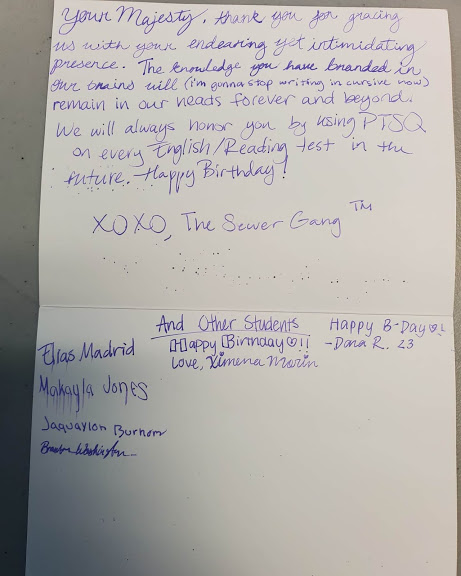 Your Majesty, thank you for gracing
us with your endearing yet intimidating
presence. The knowledge you have branded in
our brains will (i'm gonna stop writing in cursive now)
remain in our heads forever and beyond.
We will always honor you by using PTSQ
on every English/Reading test in the
future. Happy Birthday!
XOXO, The Sewer Gang ™
And Other Students
Happy B-Day ♡!
-Dana R. 23
Happy Birthday ♡!!
Love, Ximena Morin
Elias Madrid
Makayla Jones
Jaquaylon
Washington